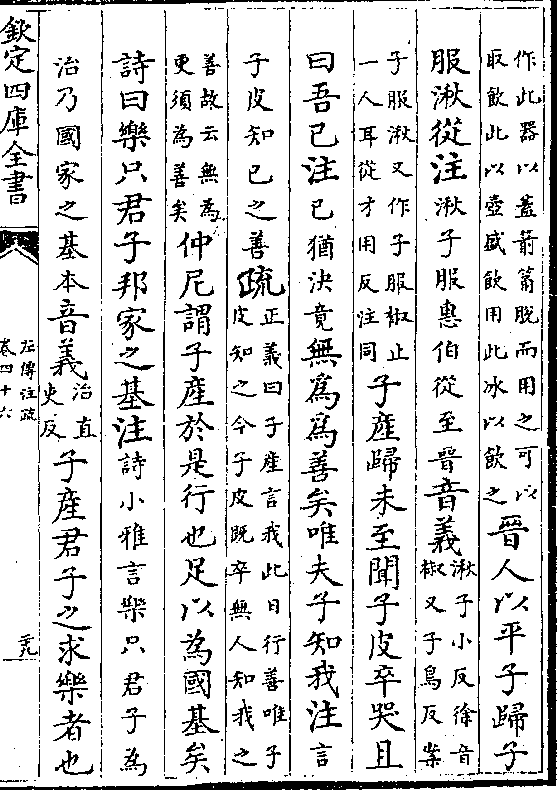 作此器以蓋箭筩脱而用之可以
取飲此以壺盛飲用此冰以飲之
晉人以平子歸子
服湫從注湫子服惠伯從至晉音義
湫子小反徐音
椒又子鳥反案
子服湫又作子服椒止
一人耳從才用反注同
子產歸未至聞子皮卒哭且
曰吾已注已猶決竟無為為善矣唯夫子知我注言
子皮知已之善疏
正義曰子產言我此日行善唯子
皮知之今子皮既卒無人知我之
善故云無為
更須為善矣
仲尼謂子產於是行也足以為國基矣
詩曰樂只君子邦家之基注詩小雅言樂只君子為
治乃國家之基本音義
治直
吏反
子產君子之求樂者也
欽定四庫全書
左傳注疏
卷四十六